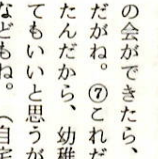 の会ができたら、
だがね。⑦これだ
たんだから、幼稚
てもいいと思うが
などもね。（自宅